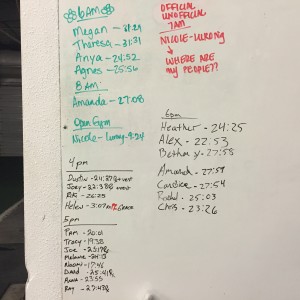 6AM
Megan - 31:21
Theresa - 31:31
Anya - 24:52
Agnes - 25:56
8AM:
Amanda - 27:08
Open Gym
Nicole - Lunny - 9:24
4pm
Dustin - 24:37 + vest
Joey - 32:38 + vest
26:25
Helen - 3:07
5pm
Pam - 20:01
Tracy - 19:38
Joe - 23:19
Melanie - 24:13
Naomi - 17:46
David - 25:41
Anna - 23:55
Ray - 27:43
OFFICIAL
UNOFFICIAL
7AM
NICOLE -
WHERE ARE
MY PEOPLE??
6pm
Heather - 24:25
Alex - 22:53
Bethany - 27:55
Amanda - 27:57
Candice - 27:54
Rachel - 25:03
Chris - 23:26